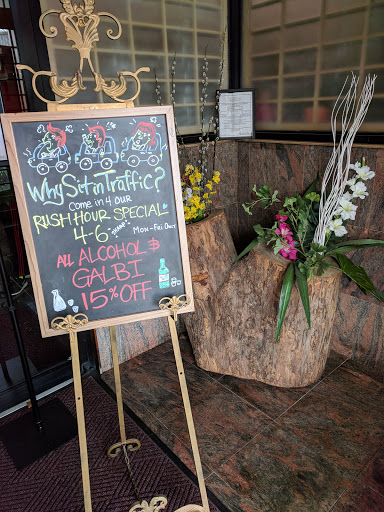 Why Sit in Traffic?
Come in 4 our
RUSH HOUR SPECIAL
4-6
Mon-Fri Only
ALL ALCOHOL &
GALBI
15% OFF